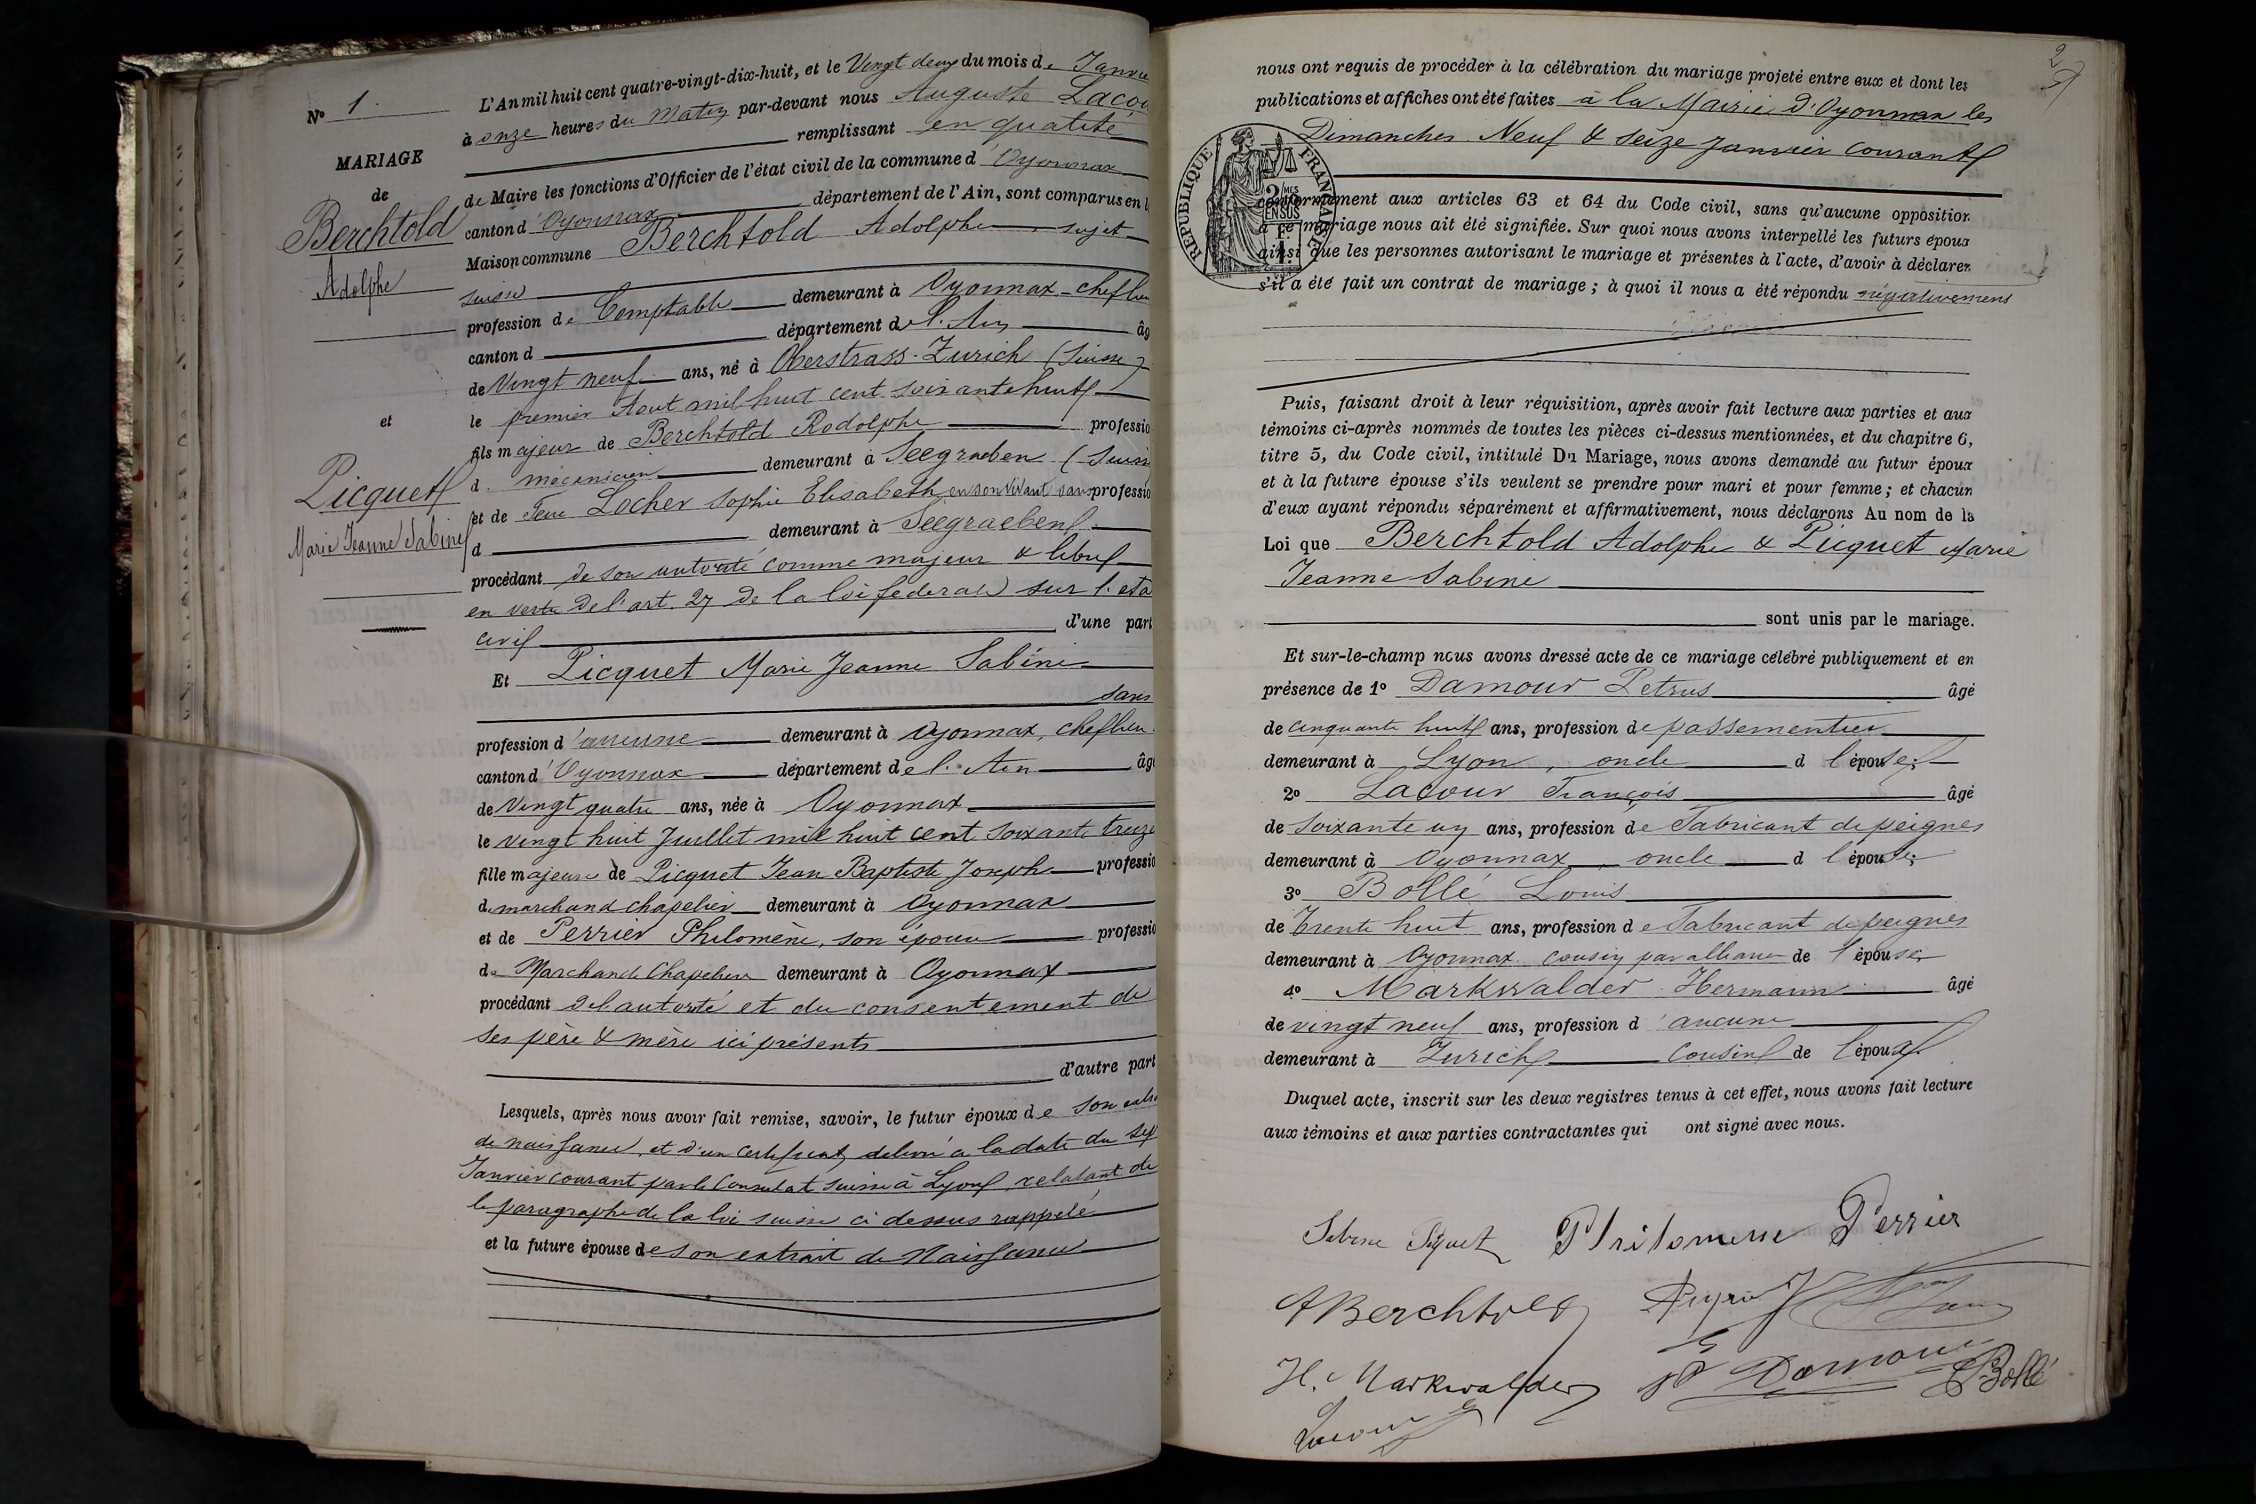 L'An mil huit cent quatre-vingt-dix-huit, et le Vingt deux du mois de Janvie
à onze heures du Matin par-devant nous Auguste Lacou
remplissant en qualité
de Maire les fonctions d'Officier de l'état civil de la commune d'Oyonnax
canton d'Oyonnax département de l'Ain, sont comparus en l
Maison commune Berchtold Adolphe sujet
suisse
profession de Comptable demeurant à Oyonnax chef lieu
canton d département de l'Ain âg
de Vingt neuf ans, né à Oberstrass-Zurich (Suisse)
le premier Aout mil huit cent soixante huit
fils majeur de Berchtold Rodolphe professio
d. mécanicien demeurant à Seegraeben (Suiss
et de Feue Locher Sophie Elisabeth, en son vivant sans professio
d demeurant à Seegraeben
procédant de son autorité comme majeur & libre
en vertu de l'art. 27 de la loi federale sur l'eta
civil d'une part
Et Picquet Marie Jeanne Sabine
sans
profession d'aucune demeurant à Oyonnax, chef lieu
canton d'Oyonnax département de l'Ain âg
de Vingt quatre ans, née à Oyonnax
le vingt huit Juillet mil huit cent soixante treize
fille majeure de Picquet Jean Baptiste Joseph professio
de marchand chapelier demeurant à Oyonnax
et de Perrier Philomène, son épouse professio
de Marchande Chapeliere demeurant à Oyonnax
procédant de l'autorité et du consentement de
ses père & mère ici présents
d'autre part
Lesquels, après nous avoir fait remise, savoir, le futur époux de son extr
de naissance, et d'un certificat délivré à la date du sep
Janvier courant par le Consulat suisse à Lyon, relatant de
le paragraphe de la loi suisse ci dessus rappelé
et la future épouse de son extrait de Naissance
N° 1.
MARIAGE
de
Berchtold
Adolphe
et
Picquet
Marie Jeanne Sabine
2
nous ont requis de procéder à la célébration du mariage projeté entre eux et dont les
publications et affiches ont été faites à la Mairie d'Oyonnax les
Dimanches Neuf & seize Janvier courant
RÉPUBLIQUE FRANÇAISE
2/10MES EN SUS
1F.
conformément aux articles 63 et 64 du Code civil, sans qu'aucune opposition
à ce mariage nous ait été signifiée. Sur quoi nous avons interpellé les futurs époux
ainsi que les personnes autorisant le mariage et présentes à l'acte, d'avoir à déclarer
s'il a été fait un contrat de mariage ; à quoi il nous a été répondu négativement
Puis, faisant droit à leur réquisition, après avoir fait lecture aux parties et aux
témoins ci-après nommés de toutes les pièces ci-dessus mentionnées, et du chapitre 6,
titre 5, du Code civil, intitulé Du Mariage, nous avons demandé au futur époux
et à la future épouse s'ils veulent se prendre pour mari et pour femme ; et chacun
d'eux ayant répondu séparément et affirmativement, nous déclarons Au nom de la
Loi que Berchtold Adolphe & Picquet Marie
Jeanne Sabine
sont unis par le mariage.
Et sur-le-champ nous avons dressé acte de ce mariage célébré publiquement et en
présence de 1° Damour Petrus âgé
de cinquante huit ans, profession de passementier
demeurant à Lyon, oncle d l'épouse;
2° Lacour François âgé
de soixante un ans, profession de Fabricant de peignes
demeurant à Oyonnax, oncle d l'épouse;
3° Bollé Louis
de Trente huit ans, profession de Fabricant de peignes
demeurant à Oyonnax cousin par alliance de l'épouse
4° Markwalder Hermann âgé
de vingt neuf ans, profession d'aucune
demeurant à Zurich Cousin de l'époux
Duquel acte, inscrit sur les deux registres tenus à cet effet, nous avons fait lecture
aux témoins et aux parties contractantes qui ont signé avec nous.
Sabine Piquet Philomene Perrier
ABerchtold
H. Markwalder P Damour Bollé
Lacour